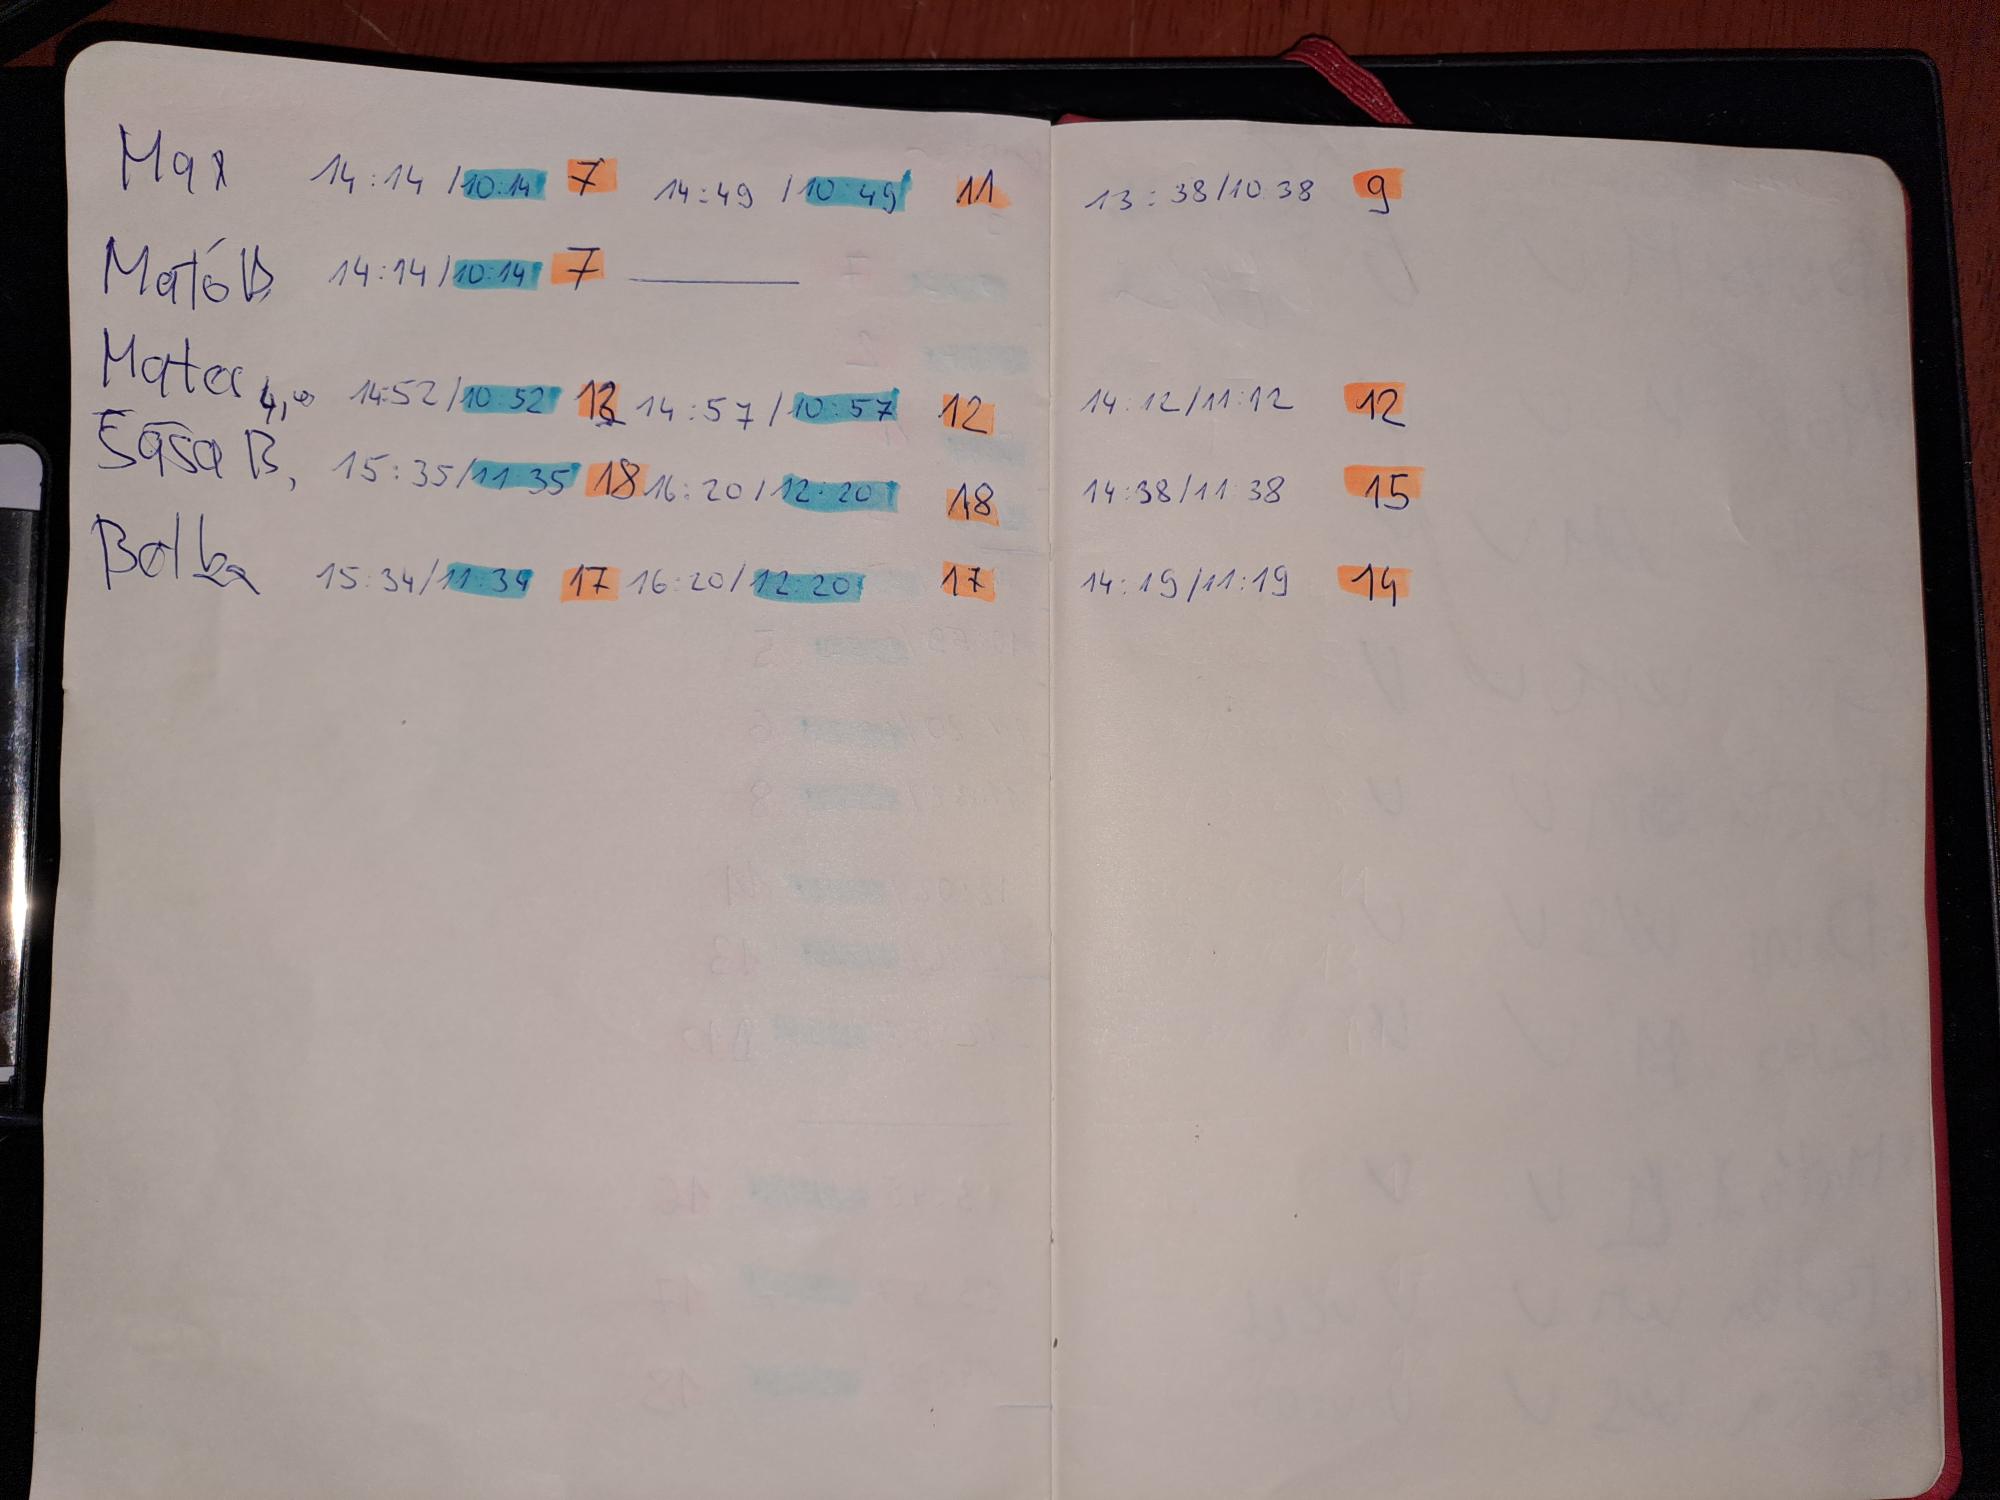 Max 14:14 / 10:14 7 14:49 / 10:49 11 13:38/10:38 9
14:14/10:14 7
14:52/10:52 14:57/10:57 12 14:12/11:12 12
Saša B, 15:35/11:35 18 16:20/12:20 18 14:38/11:38 15
15:34/11:34 17 16:20/12:20 17 14:19/11:19 14